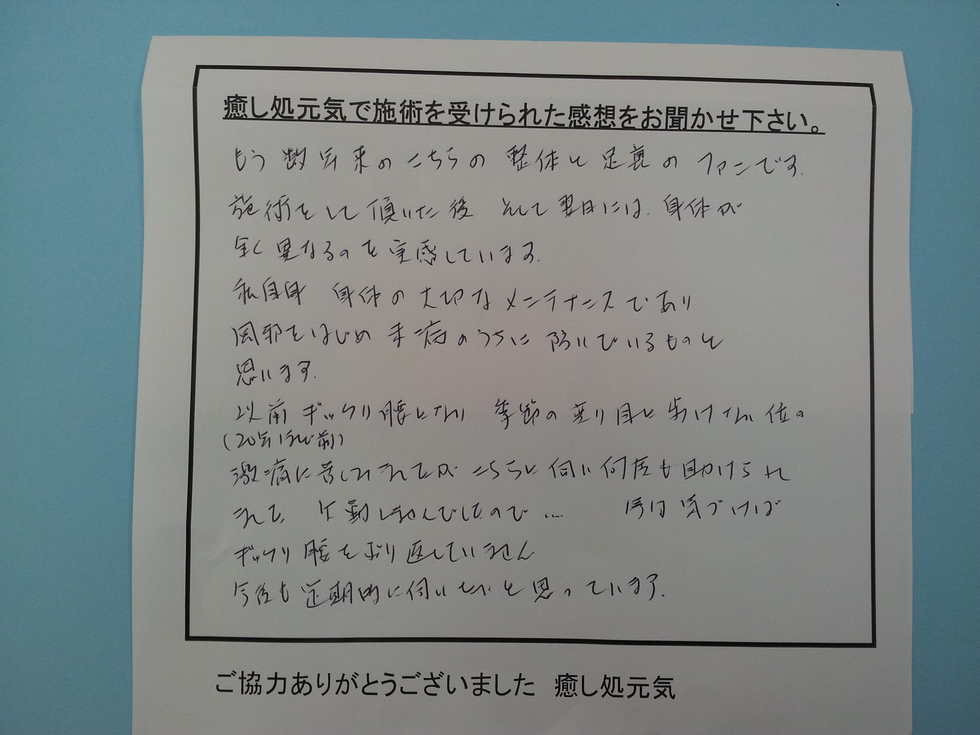 癒し処元気で施術を受けられた感想をお聞かせ下さい。
もう数年来のこちらの整体と足裏のファンです。
施術をして頂いた後 そして翌日には、身体が
全く異なるのを実感しています。
私自身 身体の大切なメンテナンスであり
風邪をはじめ未病のうちに防いでいるものと
思います。
以前ギックリ腰になり 季節の変り目に歩けない位の
(20年ほど前)
激痛に苦しみましたが こちらに伺い何度も助けられ
ました。 欠勤しませんでしたので… 今は気づけば
ギックリ腰をぶり返していません
今後も定期的に伺いたいと思っています。
ご協力ありがとうございました 癒し処元気